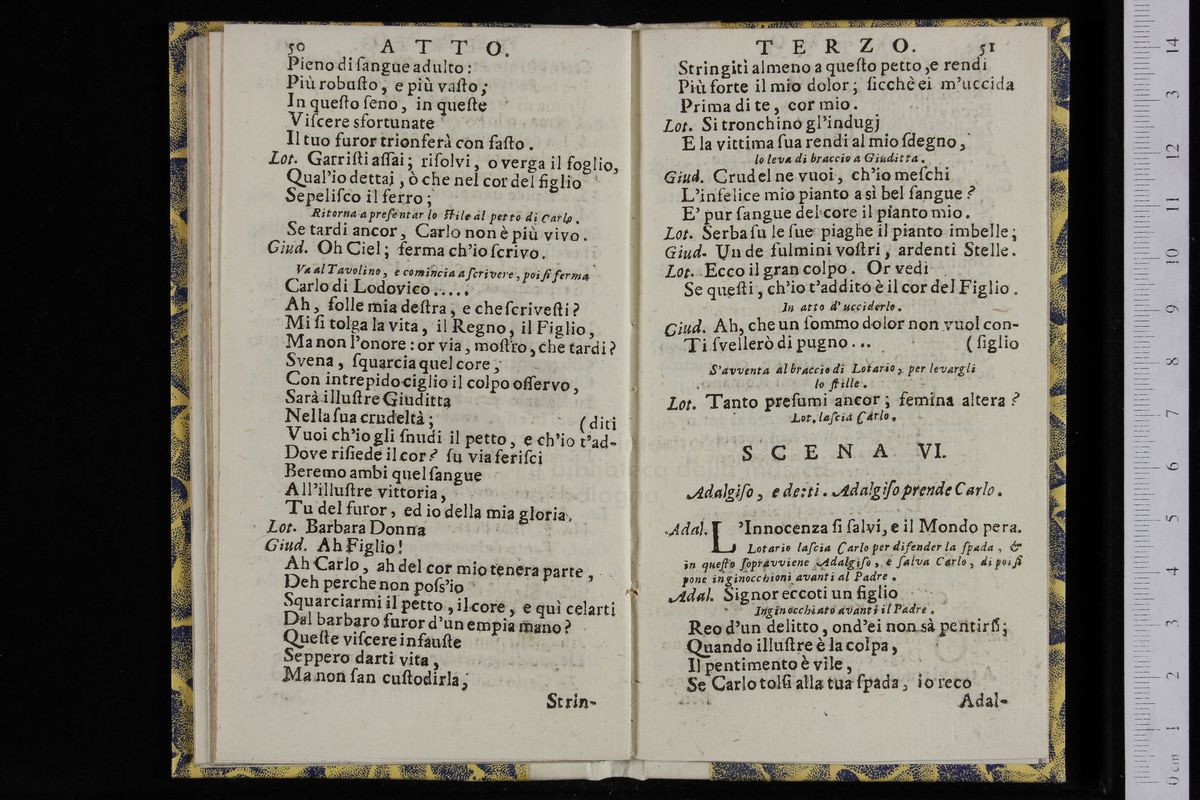 50 ATTO.
Pieno di ſangue adulto:
Più robuſto, e più vaſto;
In queſto ſeno, in queſte
Viſcere sfortunate
Il tuo furor trionferà con faſto.
Lot. Garriſti aſſai; riſolvi, o verga il foglio,
Qual'io dettai, ò che nel cor del figlio
Sepeliſco il ferro;
Ritorna a preſentar lo ſtile al petto di Carlo.
Se tardi ancor, Carlo non è più vivo.
Giud. Oh Ciel; ferma ch'io ſcrivo.
Va al Tavolino, e comincia a ſcrivere, poi ſi ferma
Carlo di Lodovico.....
Ah, folle mia deſtra, e che ſcriveſti?
Mi ſi tolga la vita, il Regno, il Figlio,
Ma non l'onore: or via, moſtro, che tardi?
Svena, ſquarcia quel core;
Con intrepido ciglio il colpo oſſervo,
Sarà illuſtre Giuditta
Nella ſua crudeltà; (diti
Vuoi ch'io gli ſnudi il petto, e ch'io t'ad-
Dove riſiede il cor? ſu via feriſci
Beremo ambi quel ſangue
All'illuſtre vittoria,
Tu del furor, ed io della mia gloria.
Lot. Barbara Donna
Giud. Ah Figlio!
Ah Carlo, ah del cor mio tenera parte,
Deh perche non poſs'io
Squarciarmi il petto, il core, e quì celarti
Dal barbaro furor d'un empia mano?
Queſte viſcere infauſte
Seppero darti vita,
Ma non ſan cuſtodirla;
Strin-
TERZO. 51
Stringiti almeno a queſto petto, e rendi
Più forte il mio dolor; ſicchè ei m'uccida
Prima di te, cor mio.
Lot. Si tronchino gl'indugj
E la vittima ſua rendi al mio ſdegno,
lo leva di braccio a Giuditta.
Giud. Crudel ne vuoi, ch'io meſchi
L'infelice mio pianto a sì bel ſangue?
E' pur ſangue del core il pianto mio.
Lot. Serba ſu le ſue piaghe il pianto imbelle;
Giud. Un de fulmini voſtri, ardenti Stelle.
Lot. Ecco il gran colpo. Or vedi
Se queſti, ch'io t'addito è il cor del Figlio.
In atto d'ucciderlo.
Giud. Ah, che un ſommo dolor non vuol con-
Ti ſvellerò di pugno... (ſiglio
S'avventa al braccio di Lotario, per levargli
lo ſtille.
Lot. Tanto preſumi ancor; femina altera?
Lot. laſcia Carlo.
SCENA VI.
Adalgiſo, e detti. Adalgiſo prende Carlo.
Adal. L'Innocenza ſi ſalvi, e il Mondo pera.
Lotario laſcia Carlo per difender la ſpada, &
in queſto ſopravviene Adalgiſo, e ſalva Carlo, di poi ſi
pone inginocchioni avanti al Padre.
Adal. Signor eccoti un figlio
Inginocchiato avanti il Padre.
Reo d'un delitto, ond'ei non sà pentirſi;
Quando illuſtre è la colpa,
Il pentimento è vile,
Se Carlo tolſi alla tua ſpada, io reco
Adal-